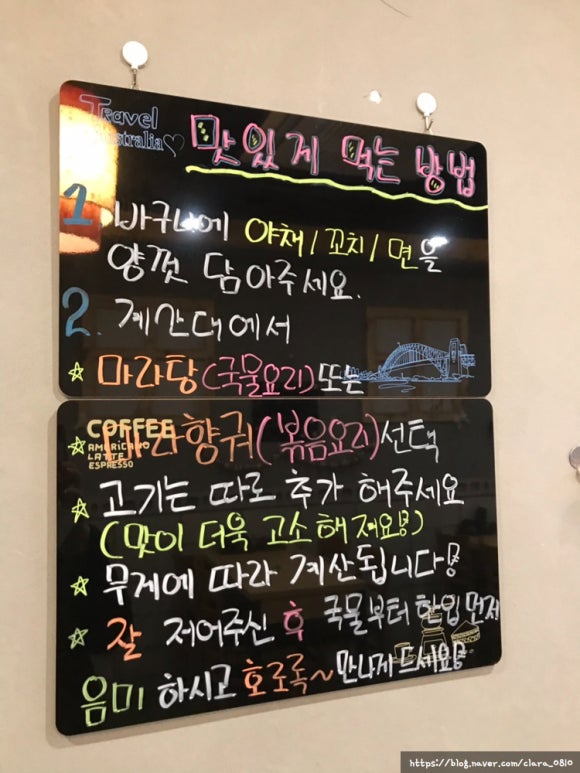 Travel
Australia
맛있게 먹는 방법
1 바구니에 야채/꼬치/면을
양껏 담아주세요.
2. 계산대에서
마라탕(국물요리)또는
COFFEE
AMERICANO
LATTE
ESPRESSO
마라향궈(볶음요리)선택
고기는 따로 추가 해주세요
(맛이 더욱 고소해져요!)
무게에 따라 계산됩니다!
잘 저어주신 후 국물부터 한입 먼저
음미 하시고 호로록~ 맛나게 드세요!
https://blog.naver.com/clara_0810